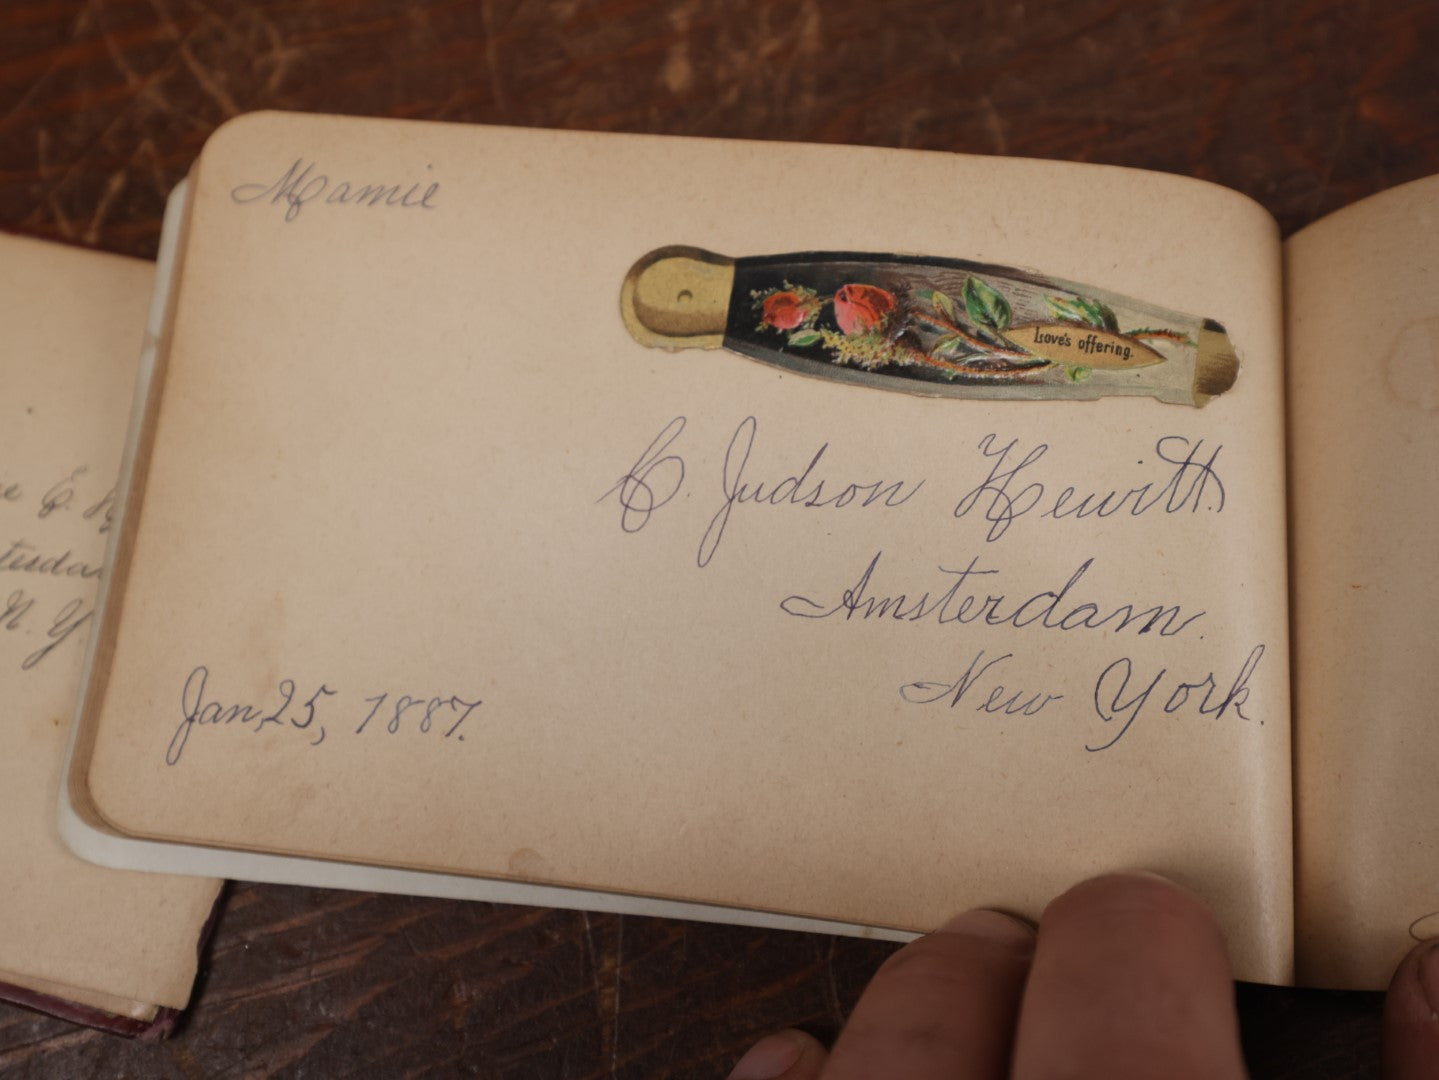 Mamie
Love's offering.
C. Judson Hewitt.
Amsterdam.
New York.
Jan, 25, 1887.
E.
N. Y.